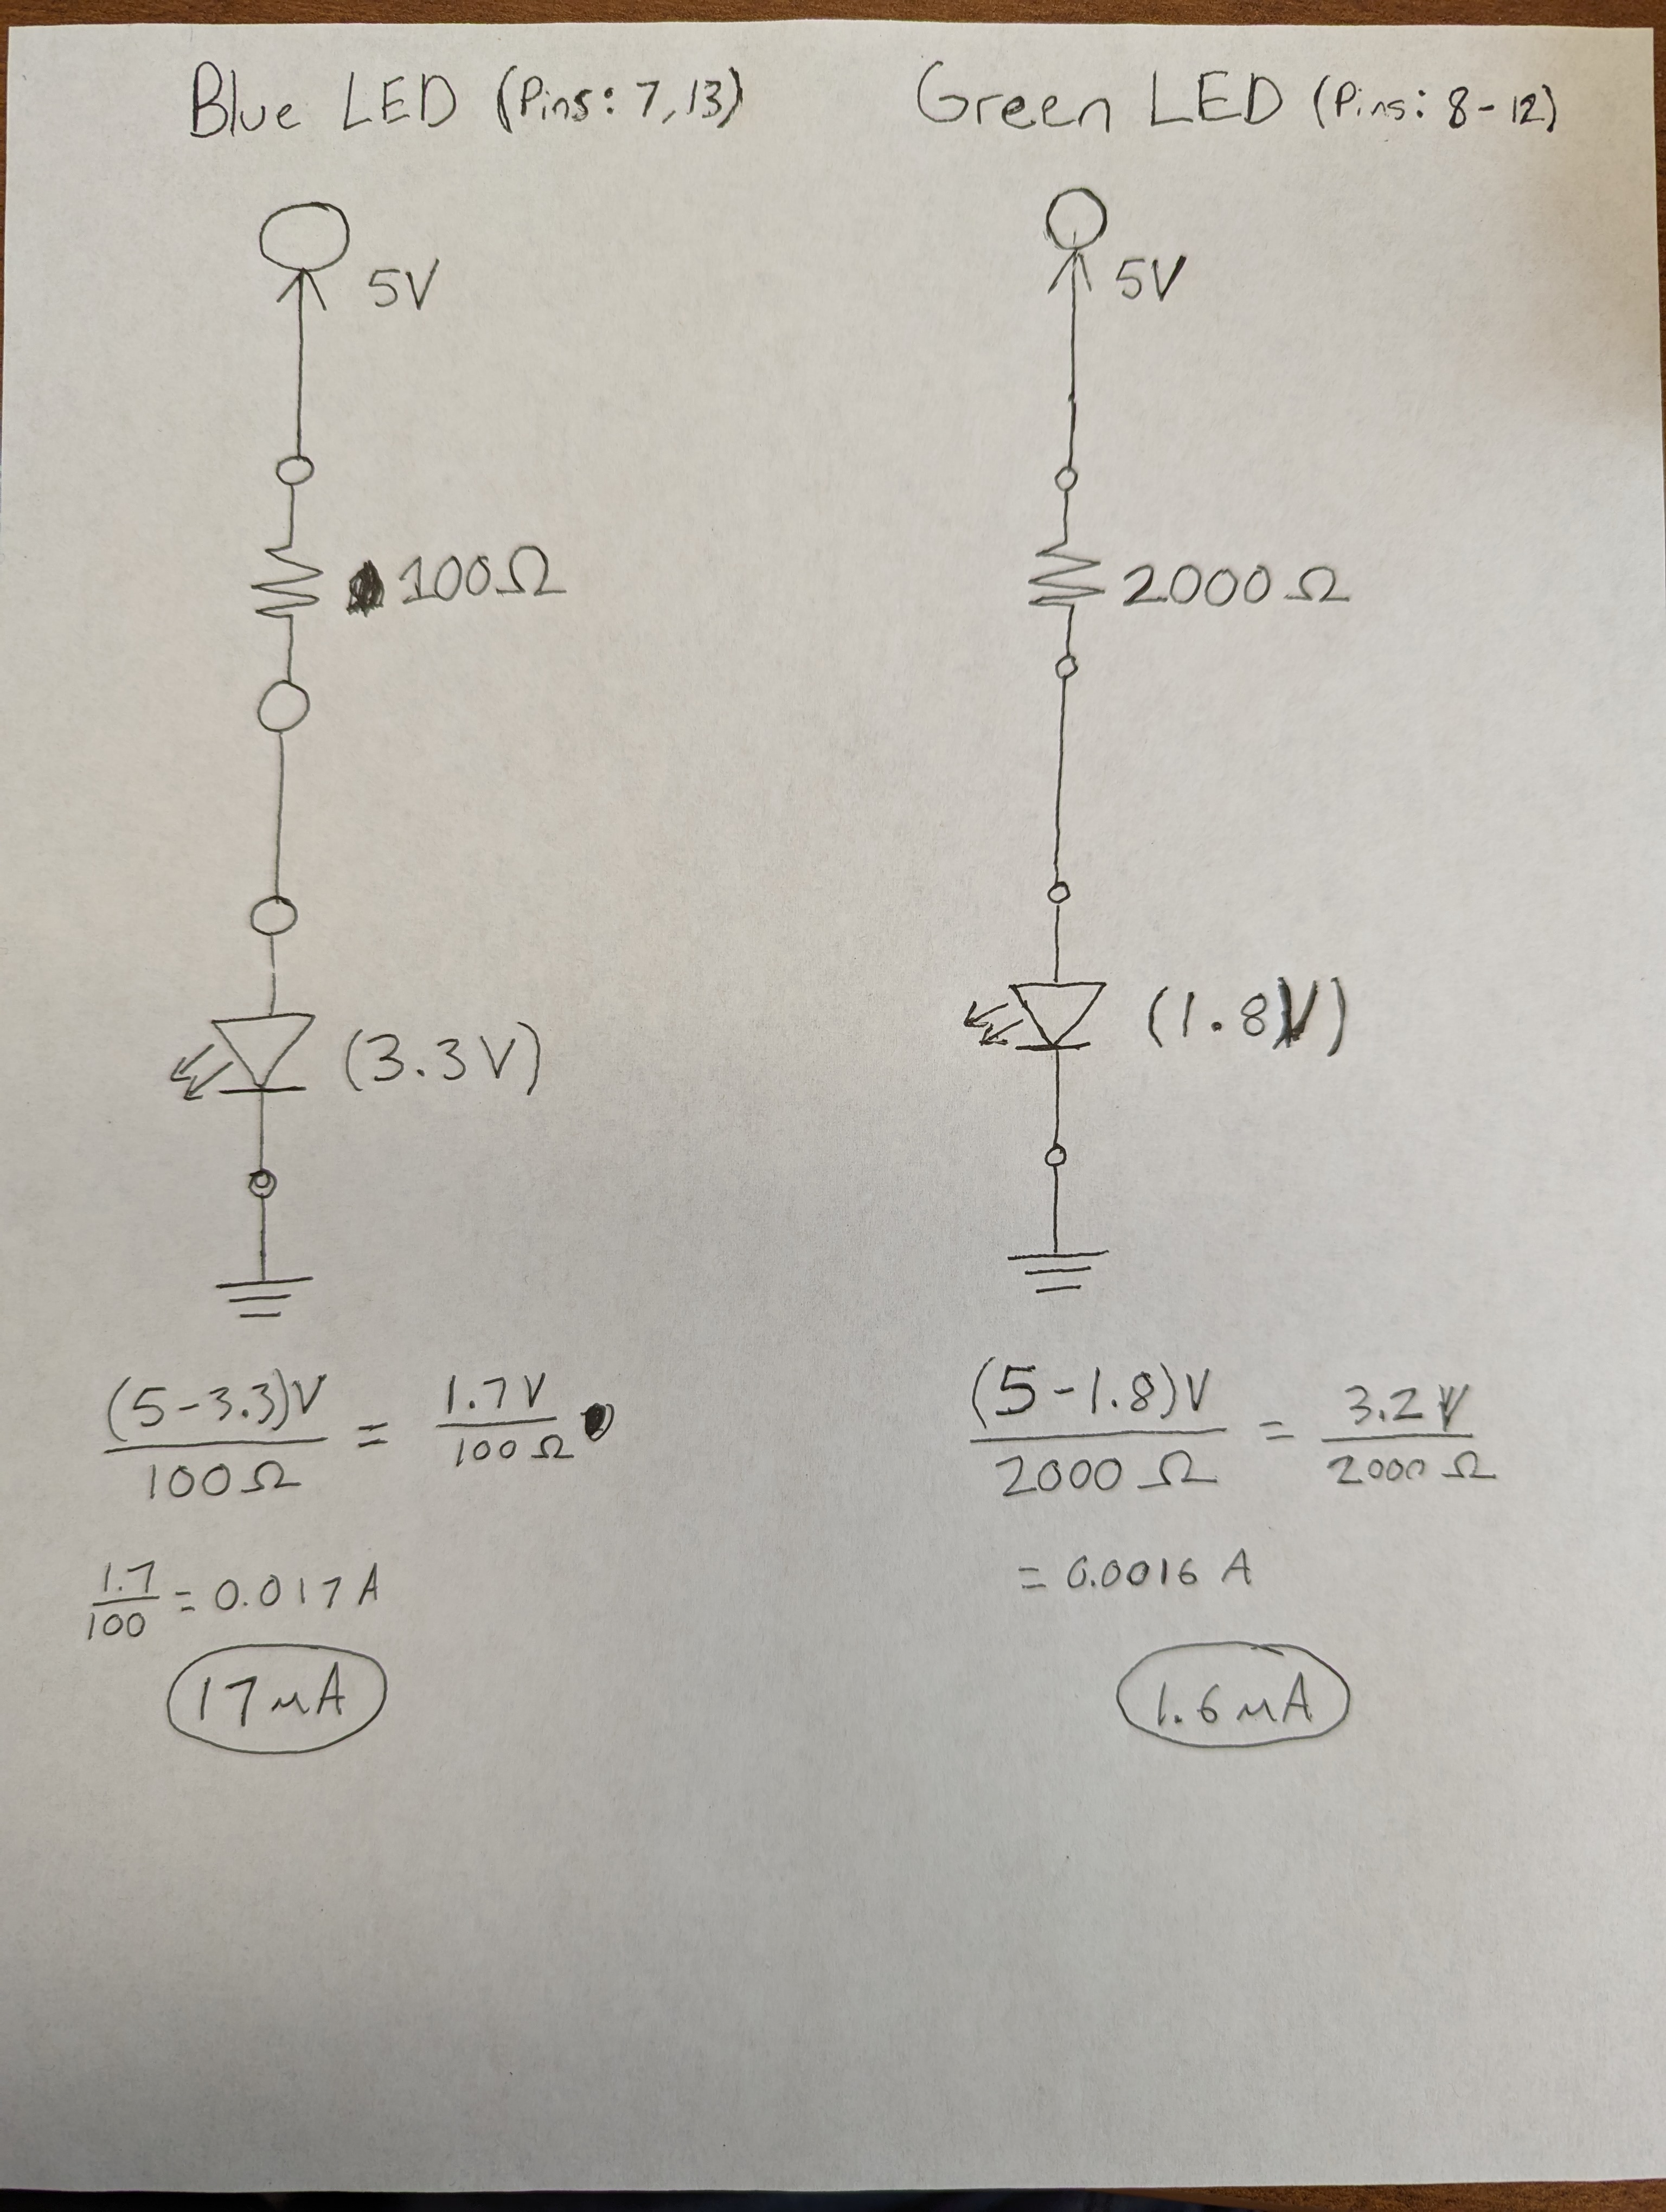 Blue LED (Pins: 7,13)
5V
100Ω
(3.3V)
(5-3.3)V
100Ω
=
1.7V
100Ω
1.7
100
= 0.017 A
17μA
Green LED (Pins: 8-12)
5V
2000Ω
(1.8V)
(5-1.8)V
2000 Ω
=
3.2V
2000 Ω
= 0.0016 A
1.6μA